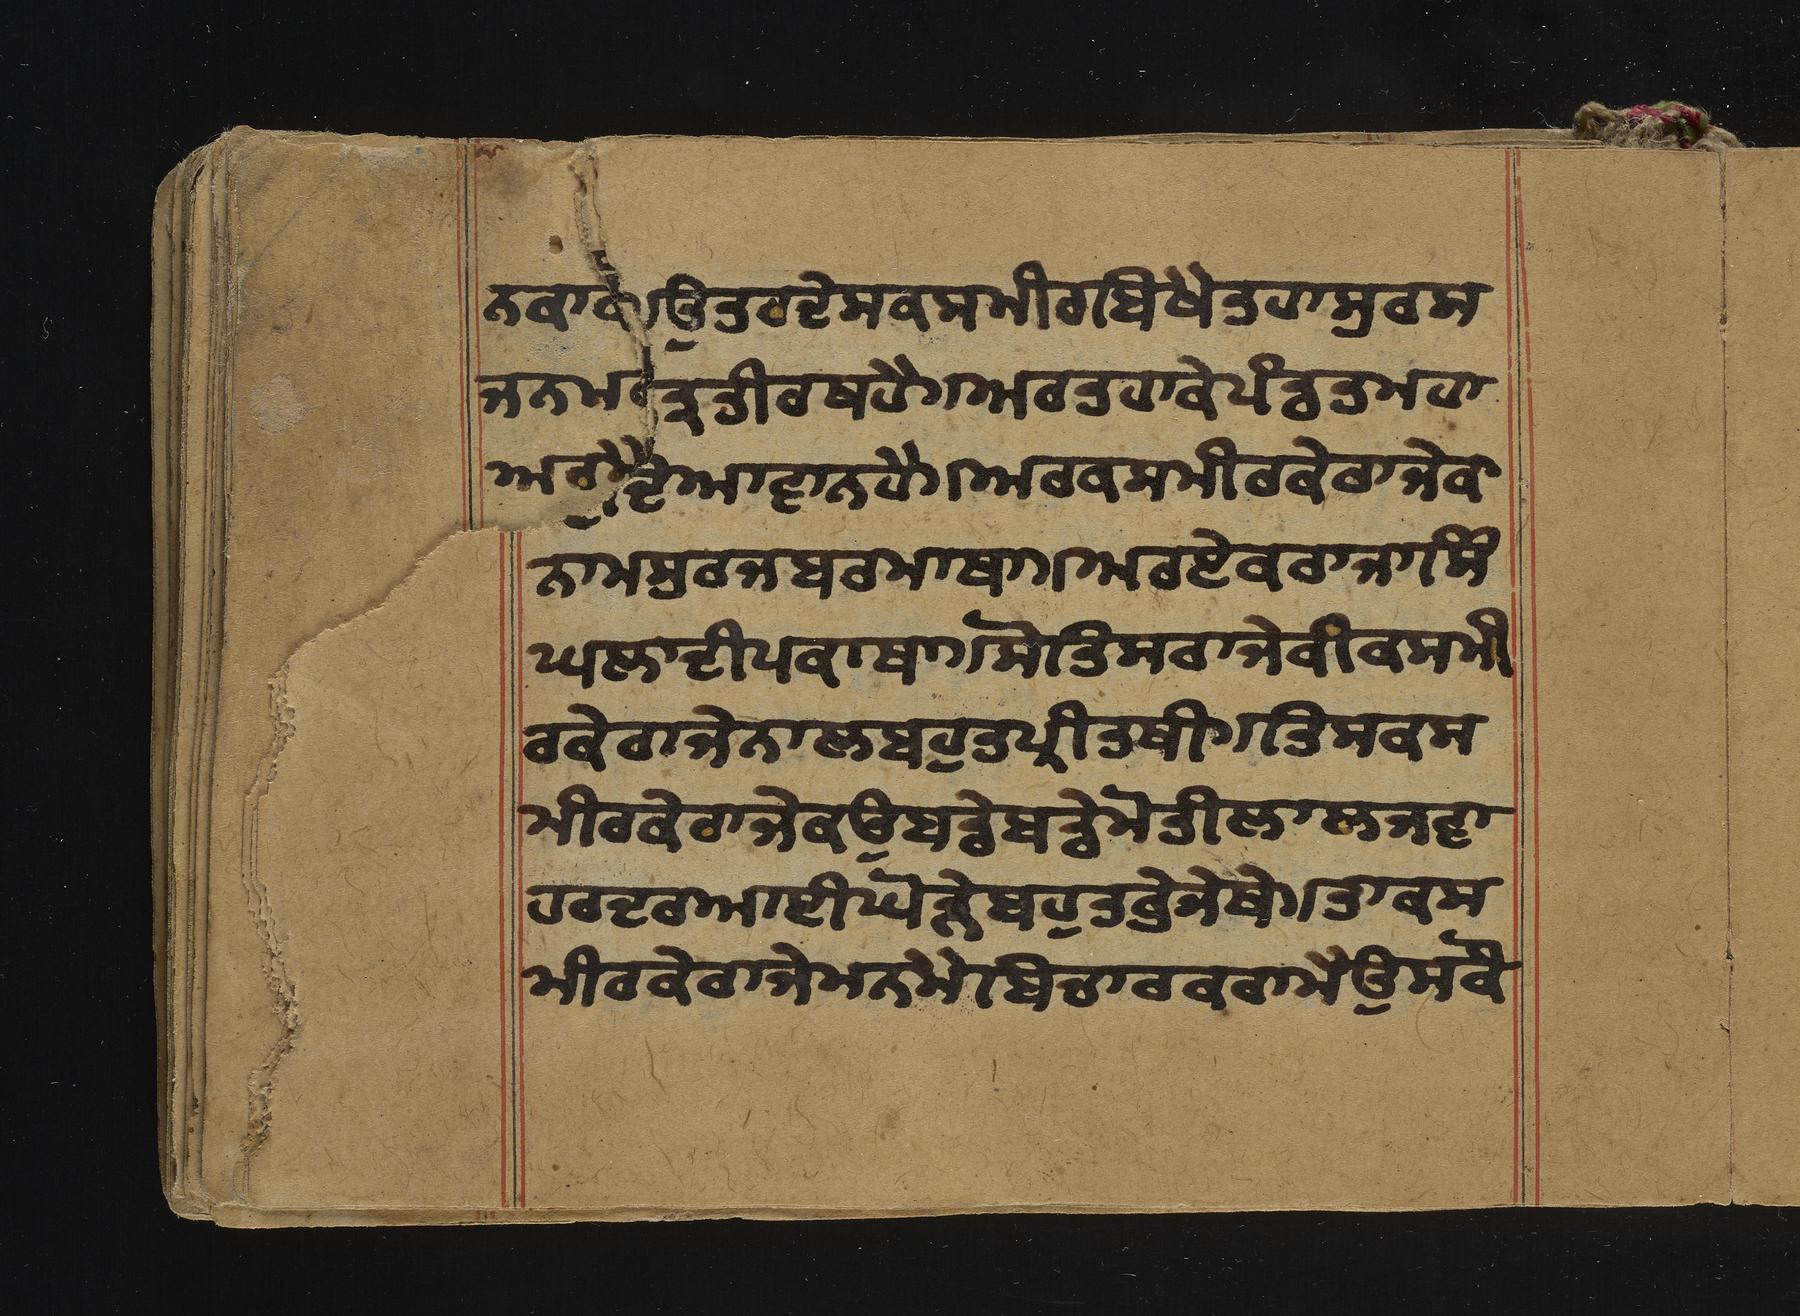 ਨਕਾਰ।ਉਤਰਦੇਸਕਸਮੀਰਬਿਖੈਤਹਾਸੁਰਸ
ਜਨਮਰਤੁਤੀਰਥਹੈ।ਅਰਤਹਾਕੇਪੰਡਤਮਹਾ
ਦੇਆਵਾਨਹੈ।ਅਰਕਸਮੀਰਕੇਰਾਜੇਕਾ
ਨਾਮਸੁਰਜਬਰਮਾਥਾ।ਅਰਏਕਰਾਜਾਸਿੰ
ਘਲਾਦੀਪਕਾਥਾ।ਸੋਤਿਸਰਾਜੇਕੀਕਸਮੀ
ਰਕੇਰਾਜੇਨਾਲਬਹੁਤਪ੍ਰੀਤਥੀ।ਤਿਸਕਸ
ਮੀਰਕੇਰਾਜੇਕਉਬਡੇਬਡੇਮੋਤੀਲਾਲਜਵਾ
ਹਰਦਰਆਈਘੋੜੇਬਹੁਤਭੇਜੇਥੇ।ਤਾਕਸ
ਮੀਰਕੇਰਾਜੇਮਨਮੈਬਿਚਾਰਕਰਾਮੈਉਸਕੌ